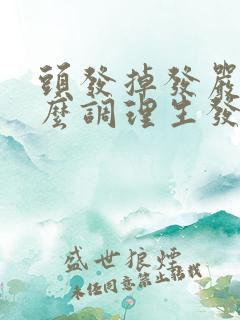 頭發掉發嚴
麼調理生發
盛世狼煙
未經同意禁止轉載